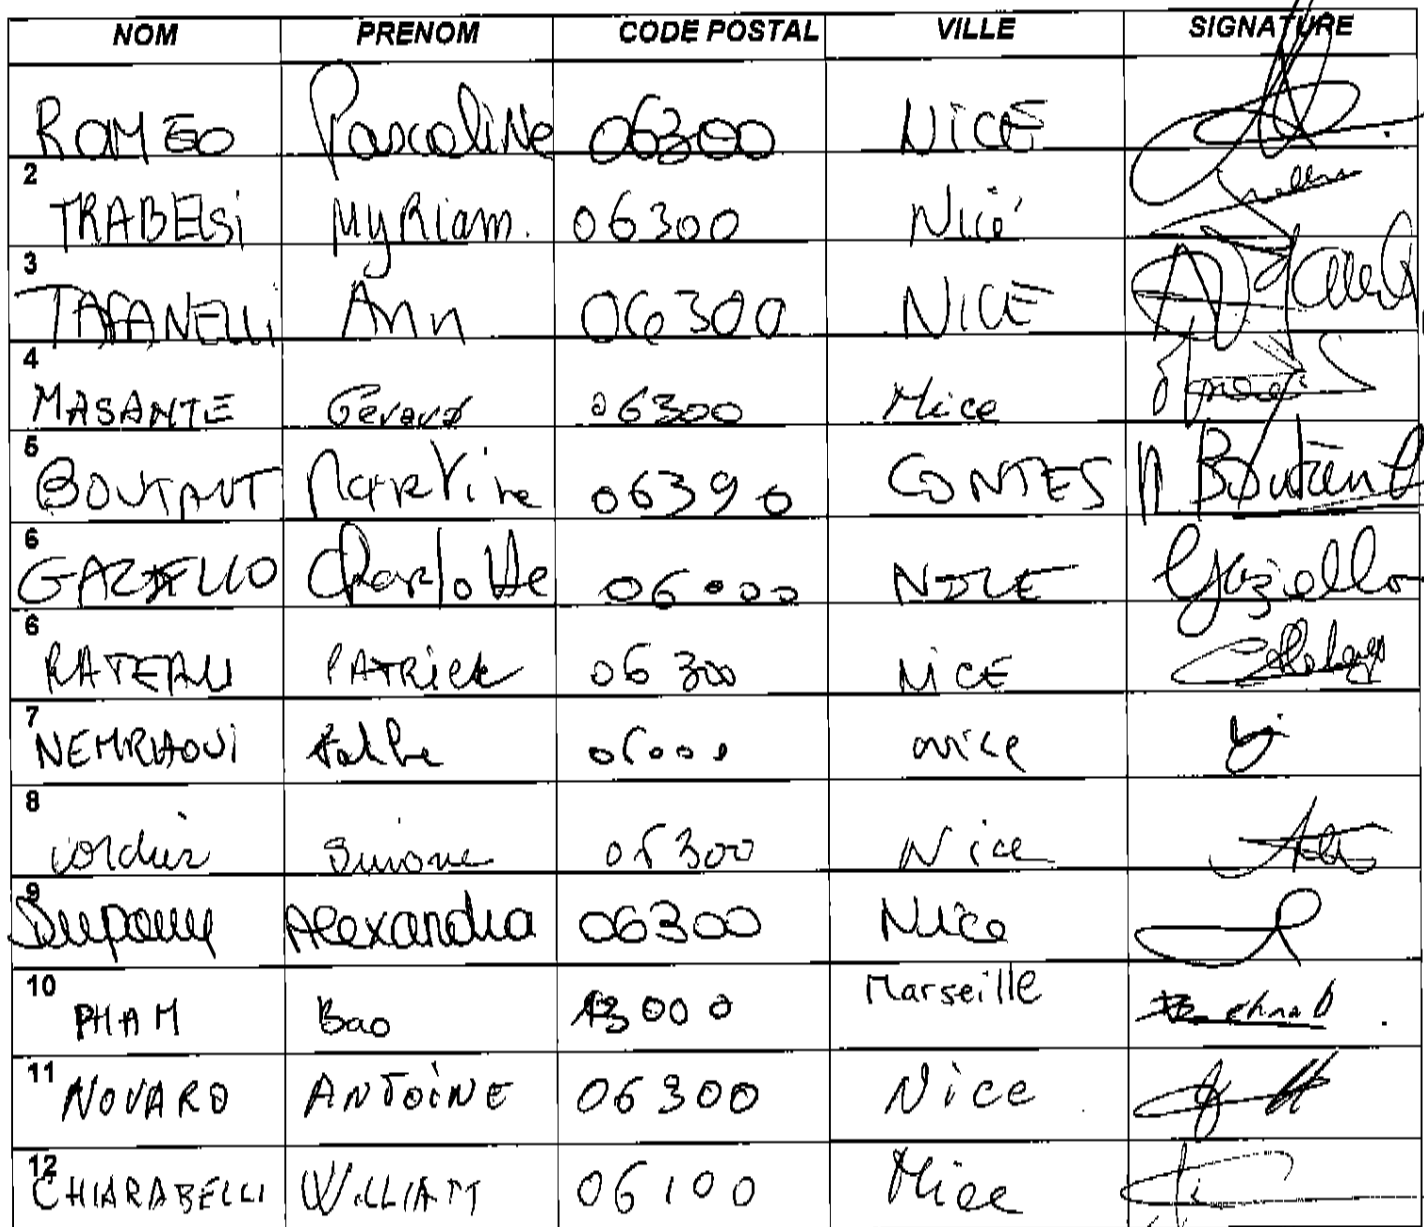 NOM PRENOM CODE POSTAL VILLE SIGNATURE
ROMEO Pascaline 06300 NICE
2 TRABELSi MyRiam. 06300 Nice
3 TAFANELLI Ann 06300 NICE
4 MASANTE Gérard 06300 Nice
5 BOUTANT Martine 06390 CONTES
6 GAZIELLO Charlotte 06000 NICE Gaziello
6 RATEAU PATRick 06300 NiCE
7 NEMRIAOUI 06000 nice
8 Simone 06300 Nice
9 Alexandra 06300 Nice
10 PHAM Bao 13000 Marseille
11 NOVARO ANToiNE 06300 Nice
12 CHIARABELLI WiLLIAM 06100 Nice